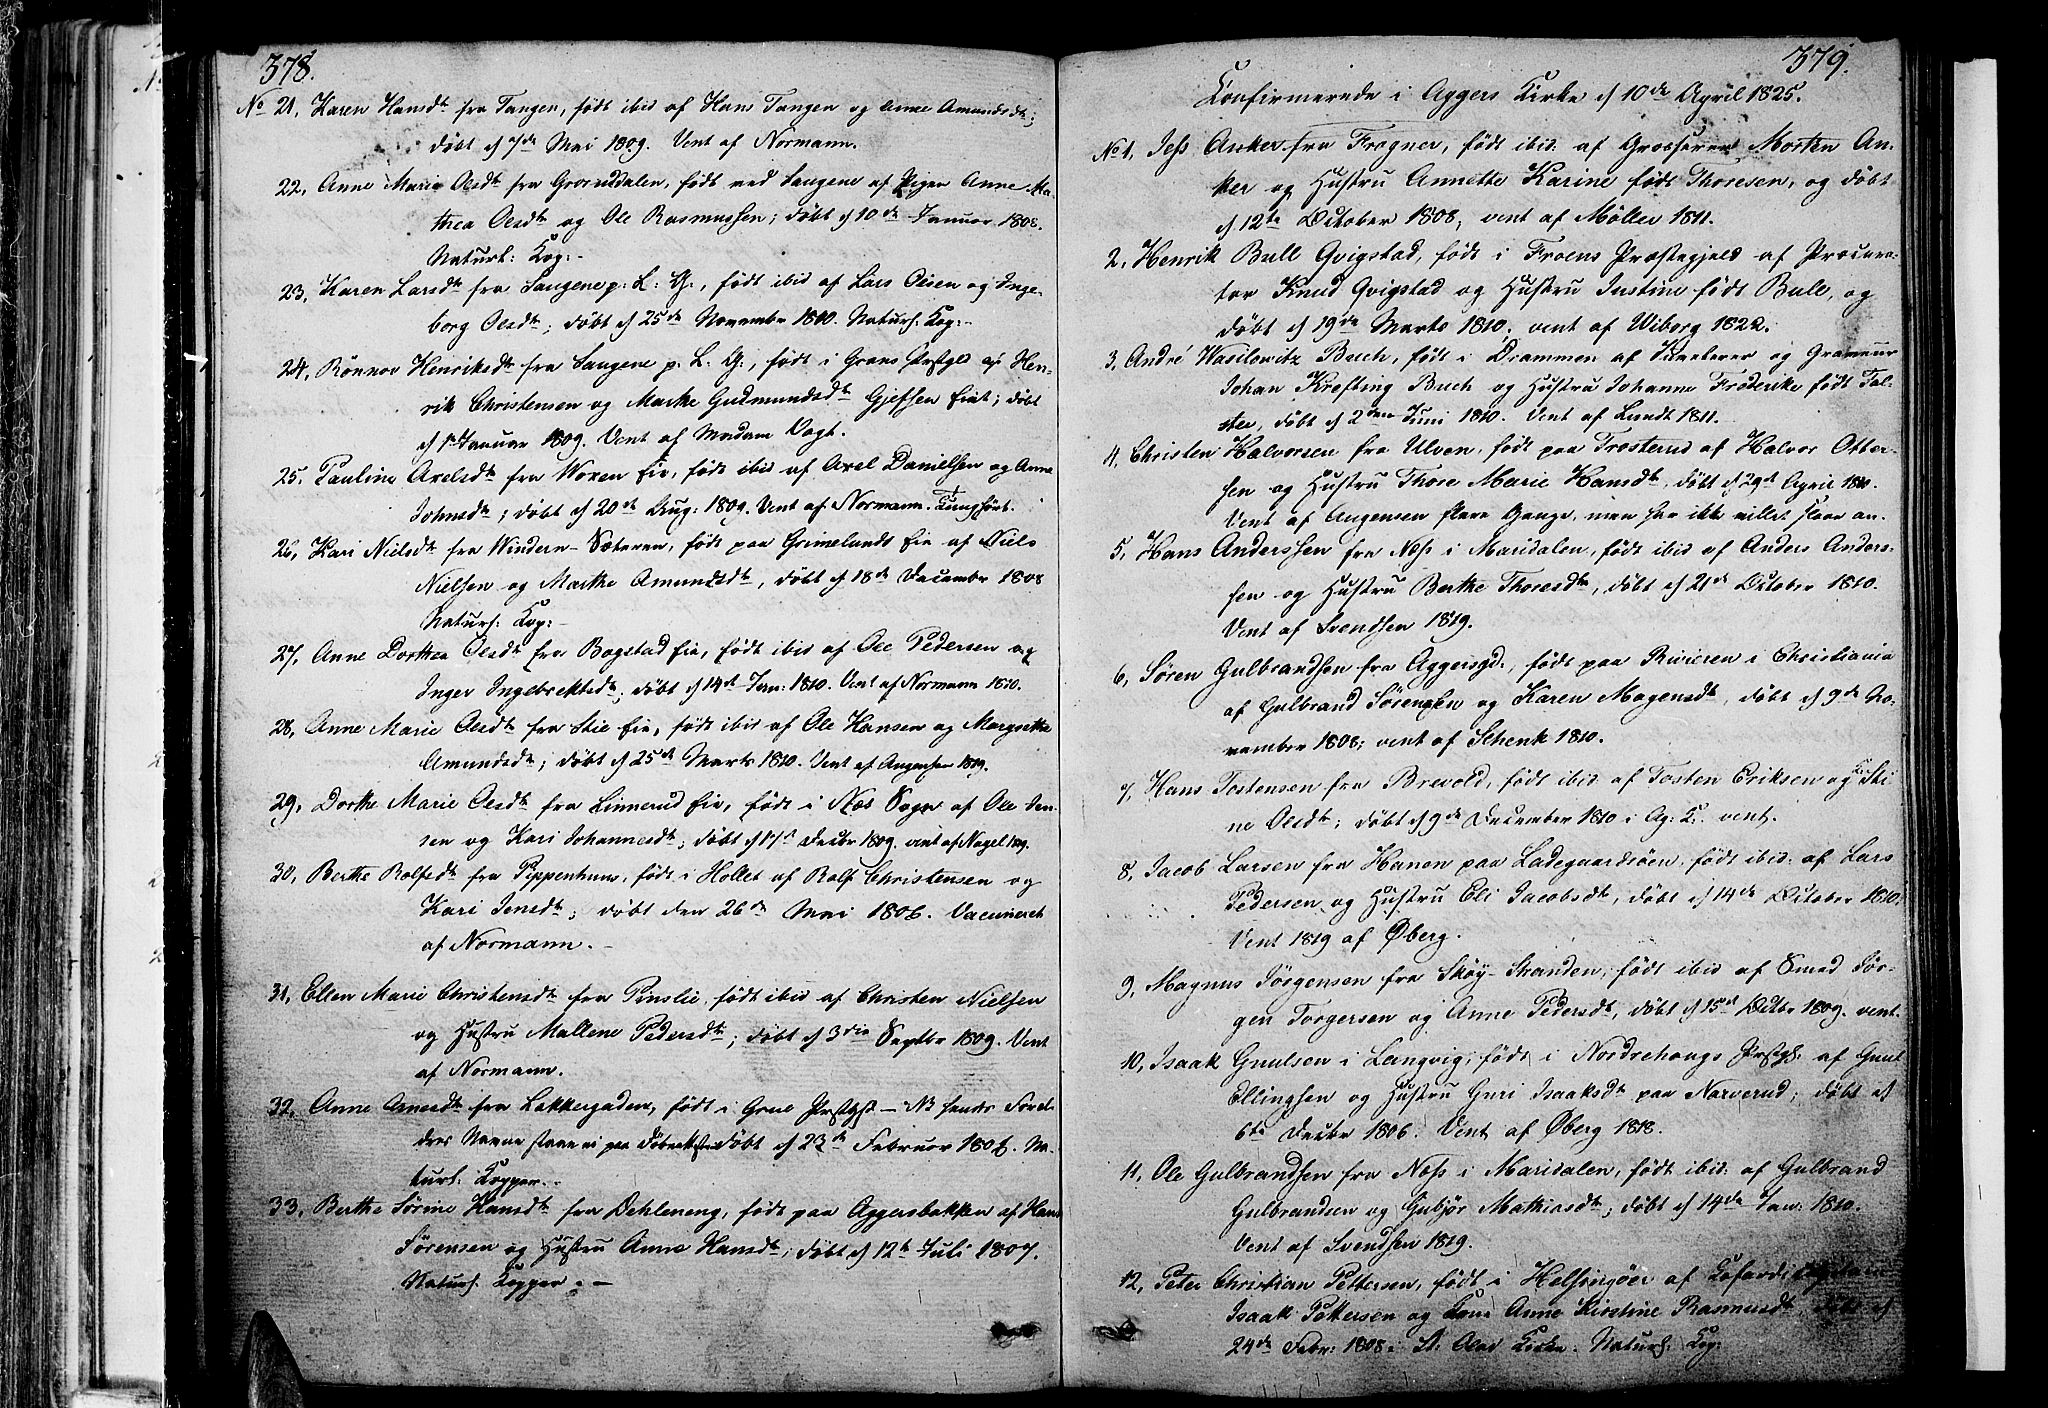 378.
No 21, Karen Hansdt fra Tangen, født ibid af Hans Tangen og Anne Amundsdt;
døbt d 7de Mai 1809. Vent af Normann.
22, Anne Marie Olsdt fra Grorudalen, født ved Saugene af Pigen Anne Ma-
threa Olsdt og Ole Rasmussen; døbt d 10de Januar 1808.
Naturl: Kop:-
23, Karen Larsdt fra Saugene p: L: G:, født ibid af Lars Olsen og Inge-
borg Olsdt; døbt d 25de November 1810. Naturl: Kop:-
24, Rønnov Henriksdt fra Saugene p. L. G., født i Grans Prstgld af Hen-
rik Christensen og Marthe Gudmundsdt Gjefsen Eiet; døbt
d 1st Januar 1809. Vent af Madam Vogt.
25, Pauline Axelsdt fra Woxen Eie, født ibid af Axel Danielsen og Anne
Johnsdt; døbt d 20de Aug: 1809. Vent af Normann. Tunghørt.
26, Kari Nielsdt fra Windern-Sæteren, født paa Grimelunds Eie af Niels
Nielsen og Marthe Amundsdt, døbt d 18de December 1808
Naturl: Kop:-
27, Anne Dorthea Olsdt fra Bogstad Eie, født ibid af Ole Pedersen og
Inger Ingebrektsdt; døbt d 14de Jan: 1810. Vent af Normann 1810.
28, Anne Marie Olsdt fra Stie Eie, født ibid af Ole Hansen og Margrethe
Amundsdt; døbt d 25de Marts 1810. Vent af Augensen 1819.
29, Dorthe Marie Olsdt fra Linnerud Eie, født i Næs Sogn af Ole Jen-
sen og Kari Johannesdt; døbt d Decbr 1809. vent af Nagel
30, Berthe Rolfsdt fra Pippenhuus, født i Hollet af Rolf Christensen og
Kari Jensdt; døbt den 26de Mai 1806. Vaccineret
af Normann. -
31, Ellen Marie Christensdt fra Pinslie, født ibid af Christen Nielsen
og Hustru Mallene Pedersdt; døbt d 3die Septbr 1809. Vent
af Normann.
32, Anne fra Lakkergaden, født i Grue Prstgld - NB hendes Forel-
dres Navne staae ei paa døbt d 23de Februar 1806. Na-
turl: Kopper.-
33, Berthe Sørine Hansdt fra Dehleneng, født paa Aggersbakken af Hans
Sørensen og Hustru Anne Hansdt; døbt d 12te Juli 1807.
Naturl: Kopper. -
379.
Confirmerede i Aggers Kirke d 10de April 1825.
No 1, Jess Anker fra Frogner, født ibid. af Grosserer Morten An-
ker og Hustru Annette Karine født Thoresen, og døbt
d 12te October 1808, vent af Møller 1811.
2, Henrik Bull Qvigstad, født i Froens Præstegjeld af Procura-
tor Knud Qvigstad og Hustru Justine født Bull, og
døbt d 19de Marts 1810. vent af Wiborg 1822.
3, André Wasilowitz Buch, født i Drammen af Juveleer og Graveur
Johan Krefting Buch og Hustru Johanne Frederike født Tol-
ster, døbt d 2den Juni 1810. Vent af Lundt 1811.
4, Christen Halvorsen fra Ulven, født paa Trosterud af Halvor Otter-
sen og Hustru Thore Marie Hansdt, døbt d 29de April 1810.
Vent af Augensen flere Gange, men har ikke villet slaae an.
5, Hans Anderssen fra Næss i Maridalen, født ibid af Anders Anders-
sen og Hustru Berthe Thoresdt, døbt d 21de October 1810.
Vent af Svendsen 1819.
6, Søren Gulbrandsen fra Aggersgd:, født paa Rivieren i Christiania
af Gulbrand Sørensen og Karen Mogensdt, døbt d 9de No-
vember 1808; vent af Schenk 1810.
7, Hans Tostensen fra Brevold, født ibid af Tosten Eriksen og Kisti
ne Olsdt; døbt d 9de December 1810 i Ag: K: vent.
8, Jacob Larsen fra Hanen paa Ladegaardsøen, født ibid: af Lars
Pedersen og Hustru Eli Jacobsdt, døbt d 14de October 1810.
Vent 1819 af Øberg.
9, Magnus Jørgensen fra Skøy-Stranden, født ibid af Smed Jør-
gen Torgersen og Anne Pedersdt, døbt d 15de Octbr 1809. vent.
10, Isaak Gnulsen i Langvig, født i Nordrehougs Prstgl: af Gnul
Ellingsen og Hustru Guri Isaaksdt paa Narverud; døbt d
6te Decbr 1806. Vent af Øberg 1818.
11, Ole Gulbrandsen fra Næss i Maridalen, født ibid: af Gulbrand
Gulbrandsen og Gubjør Mathisdt; døbt d 14de Jan: 1810.
Vent af Svendsen 1819.
12, Peter Christian Pettersen, født i Helsingøer af
Isaak Pettersen og Kone Anne Kirstine Rasmusdt, døbt d
24de Febr: 1808 i St: Olai Kirke. Naturl: Kop: